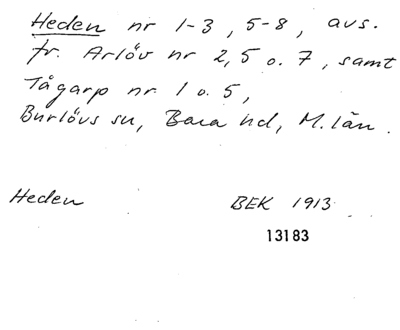 Heden nr 1-3, 5-8, avs.
fr. Arlöv nr 2, 5 o. 7, samt
Tågarp nr 1 o. 5,
Burlövs sn, Bara hd, M. län.
Heden BEK 1913
13183